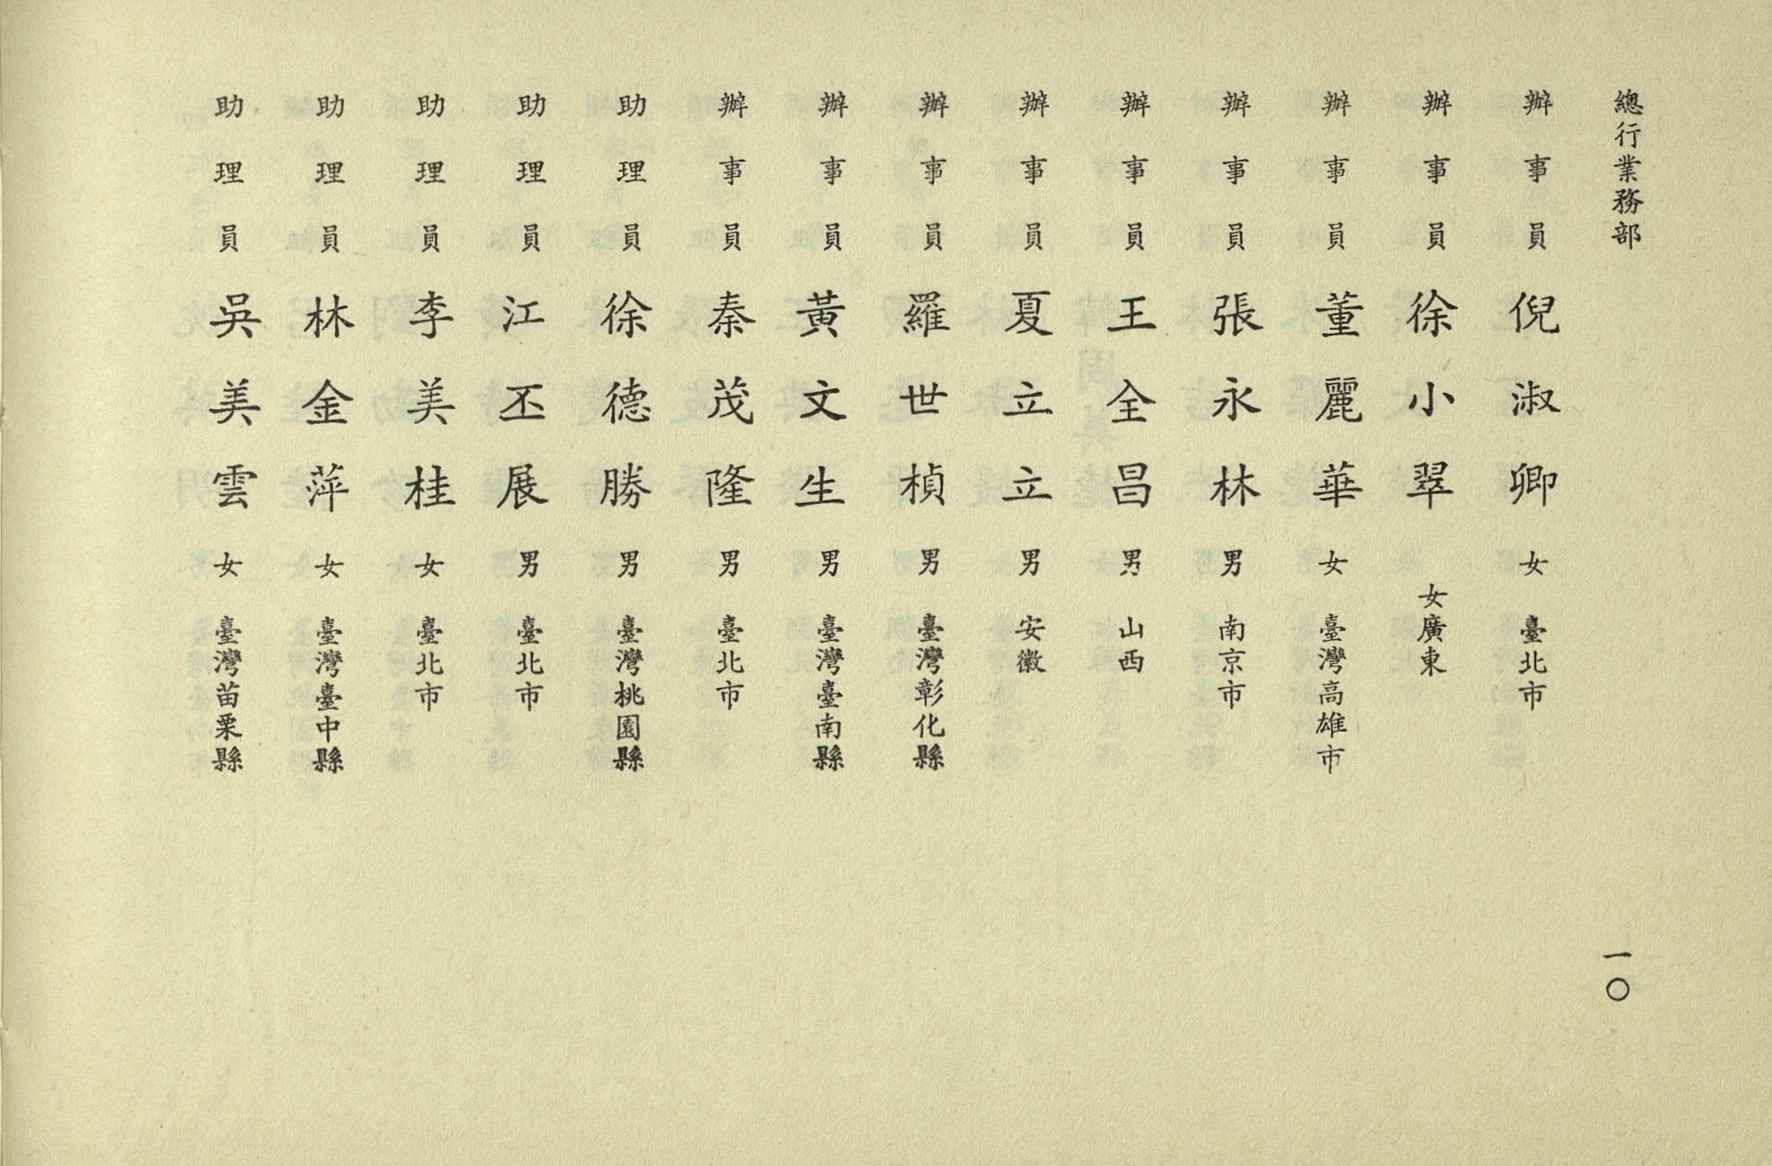 總行業務部
辦事員 倪淑卿 女 臺北市
辦事員 徐小翠 女廣東
辦事員 董麗華 女 臺灣高雄市
辦事員 張永林 男 南京市
辦事員 王全昌 男 山西
辦事員 夏立立 男 安徽
辦事員 羅世楨 男 臺灣彰化縣
辦事員 黃文生 男 臺灣臺南縣
辦事員 秦茂隆 男 臺北市
助理員 徐德勝 男 臺灣桃園縣
助理員 江丕展 男 臺北市
助理員 李美桂 女 臺北市
助理員 林金萍 女 臺灣臺中縣
助理員 吳美雲 女 臺灣苗栗縣
一〇